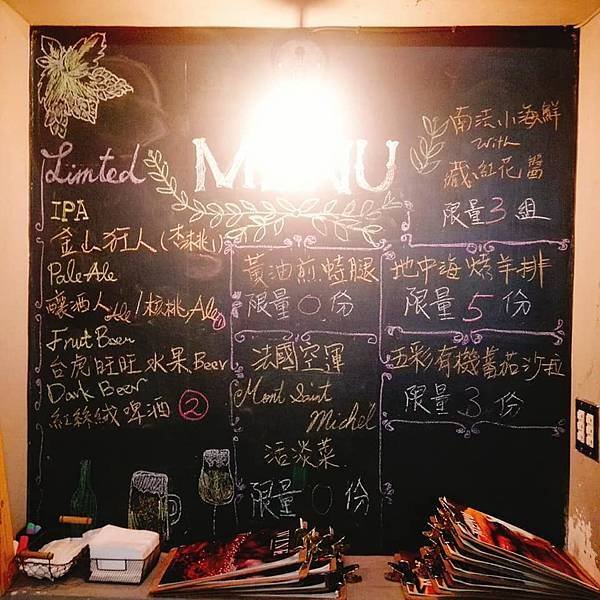 MENU
Limted
IPA
金山狂人(杏桃)
Pale Ale
釀酒人Ale/核桃Ale
Fruit Beer
台虎旺旺水果Beer
Dark Beer
紅絲絨啤酒 2
黃油煎蛙腿
限量0份
法國空運
Mont Saint
Michel
活淡菜
限量0份
南法小海鮮
with
藏紅花醬
限量3組
地中海烤羊排
限量5份
五彩有機蕃茄沙拉
限量3份